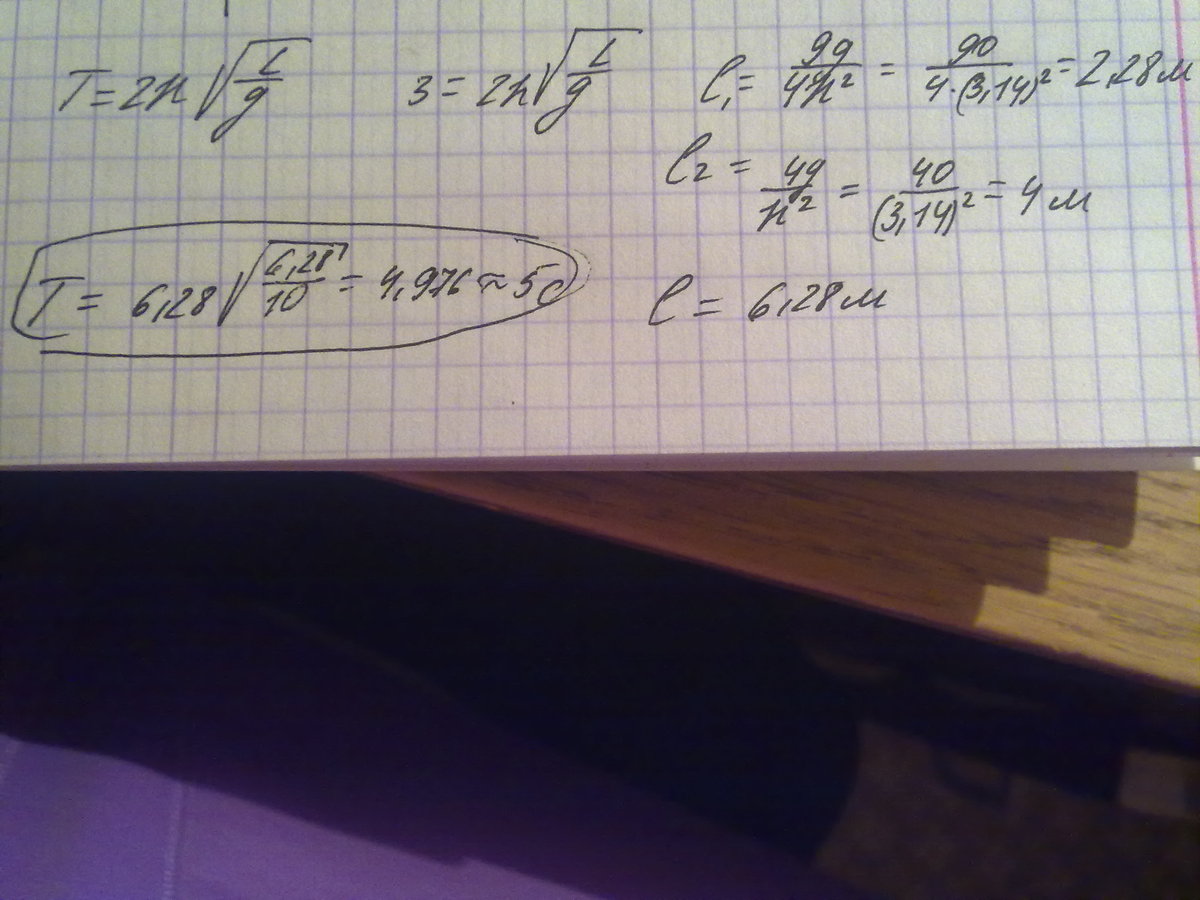 T = 2π√(L/g) 3 = 2π√(L/g) l₁ = 9g/4π² = 90/4·(3,14)² = 2,28 м
l₂ = 4g/π² = 40/(3,14)² = 4 м
T = 6,28√(6,28/10) = 4,976 ≈ 5с l = 6,28 м